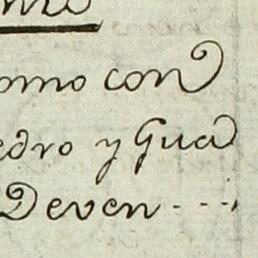 omo con
edro y Gua
Deven